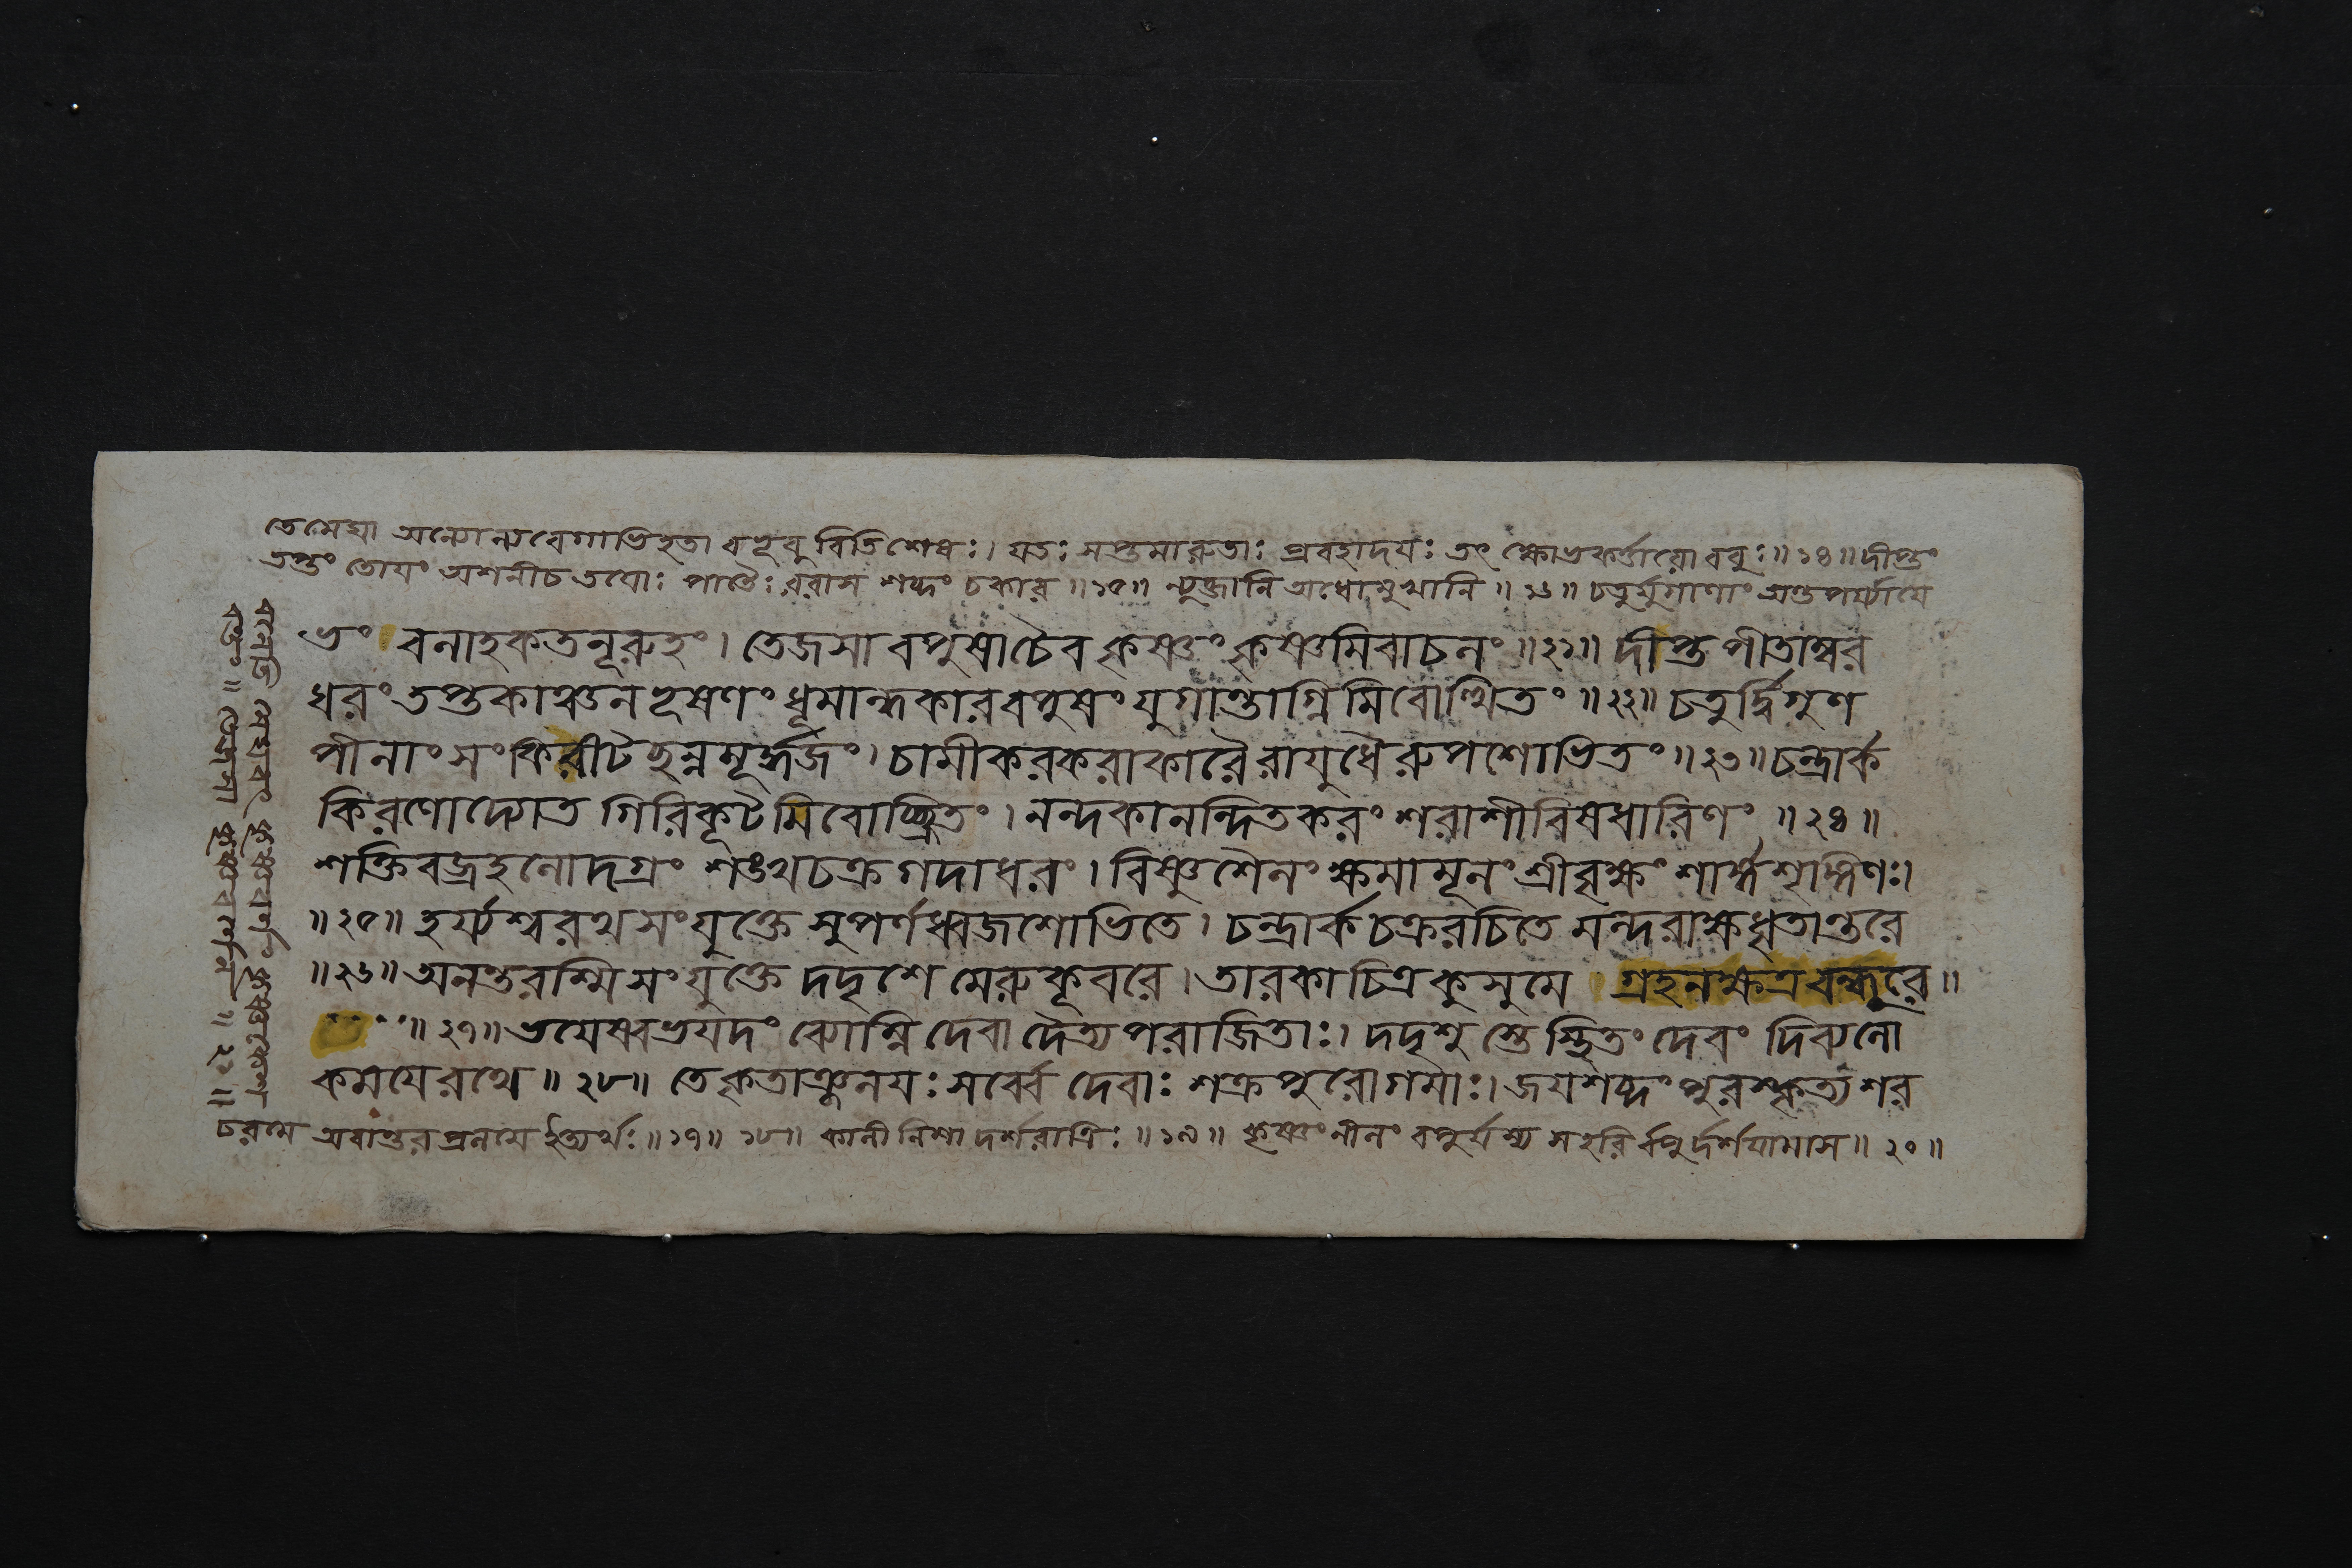 তেমেঘা অন্যোন্যবেগাভিহতা বহুবু বিতিশেষঃ। যতঃ সপ্তমারুতাঃ প্রবহাদয়ঃ তৎ ক্ষোভকর্ত্তারো ববুঃ॥ ১৪॥ দীপ্তং
তপ্তং তোয়ং অশনীচ তয়োঃ পাতৈঃ ররাস শব্দং চকার॥ ১৫॥ ন্যুব্জানি অধোমুখানি॥ ১৬॥ চতুর্যুগাণাং অন্তপর্য্যায়ে
ভং বলাহকতনূরুহং। তেজসা বপুষাচৈব কৃষ্ণং কৃষ্ণমিবাচলং॥ ২১॥ দীপ্ত পীতাম্বর
ধরং তপ্তকাঞ্চনভূষণং ধূমান্ধকারবপুষং যুগান্তাগ্নিমিবোত্থিতং॥ ২২॥ চতুর্দ্বিগুণ
পীনাংসং কিরীটছন্নমূর্দ্ধজং। চামীকরকরাকারৈরায়ুধৈরুপশোভিতং॥ ২৩॥ চন্দ্রার্ক
কিরণোদ্যোত গিরিকূটমিবোচ্ছ্রিতং। নন্দকানন্দিতকরং শরাশীবিষধারিণং॥ ২৪॥
শক্তিবজ্রহলোদগ্রং শঙ্খচক্রগদাধরং। বিষ্ণুশৈলং ক্ষমামূলং শ্রীবৃক্ষং শার্ঙ্গশৃঙ্গিণং।
॥ ২৫॥ হর্য্যশ্বরথসংযুক্তে সুপর্ণধ্বজশোভিতে। চন্দ্রার্কচক্ররচিতে মন্দরাক্ষধৃতান্তরে
॥ ২৬॥ অনন্তরশ্মিসংযুক্তে দদৃশে মেরুকূবরে। তারকাচিত্রকুসুমে গ্রহনক্ষত্রবন্ধুরে॥
॥ ২৭॥ ভয়েষ্বভয়দং ব্যোম্নি দেবা দৈত্যপরাজিতাঃ। দদৃশু স্তে স্থিতং দেবং দিব্যলো
কময়েরথে॥ ২৮॥ তে কৃতাঞ্জলয়ঃ সর্ব্বে দেবাঃ শক্রপুরোগমাঃ। জয়শব্দং পুরস্কৃত্য শর
চরমে অবান্তরপ্রলয়ে ইত্যর্থঃ॥ ১৭॥ ১৮॥ কালী নিশা দর্শরাত্রিঃ॥ ১৯॥ কৃষ্ণং নীলং বপুর্যস্য সহরি র্বপুর্দর্শয়ামাস॥ ২০॥